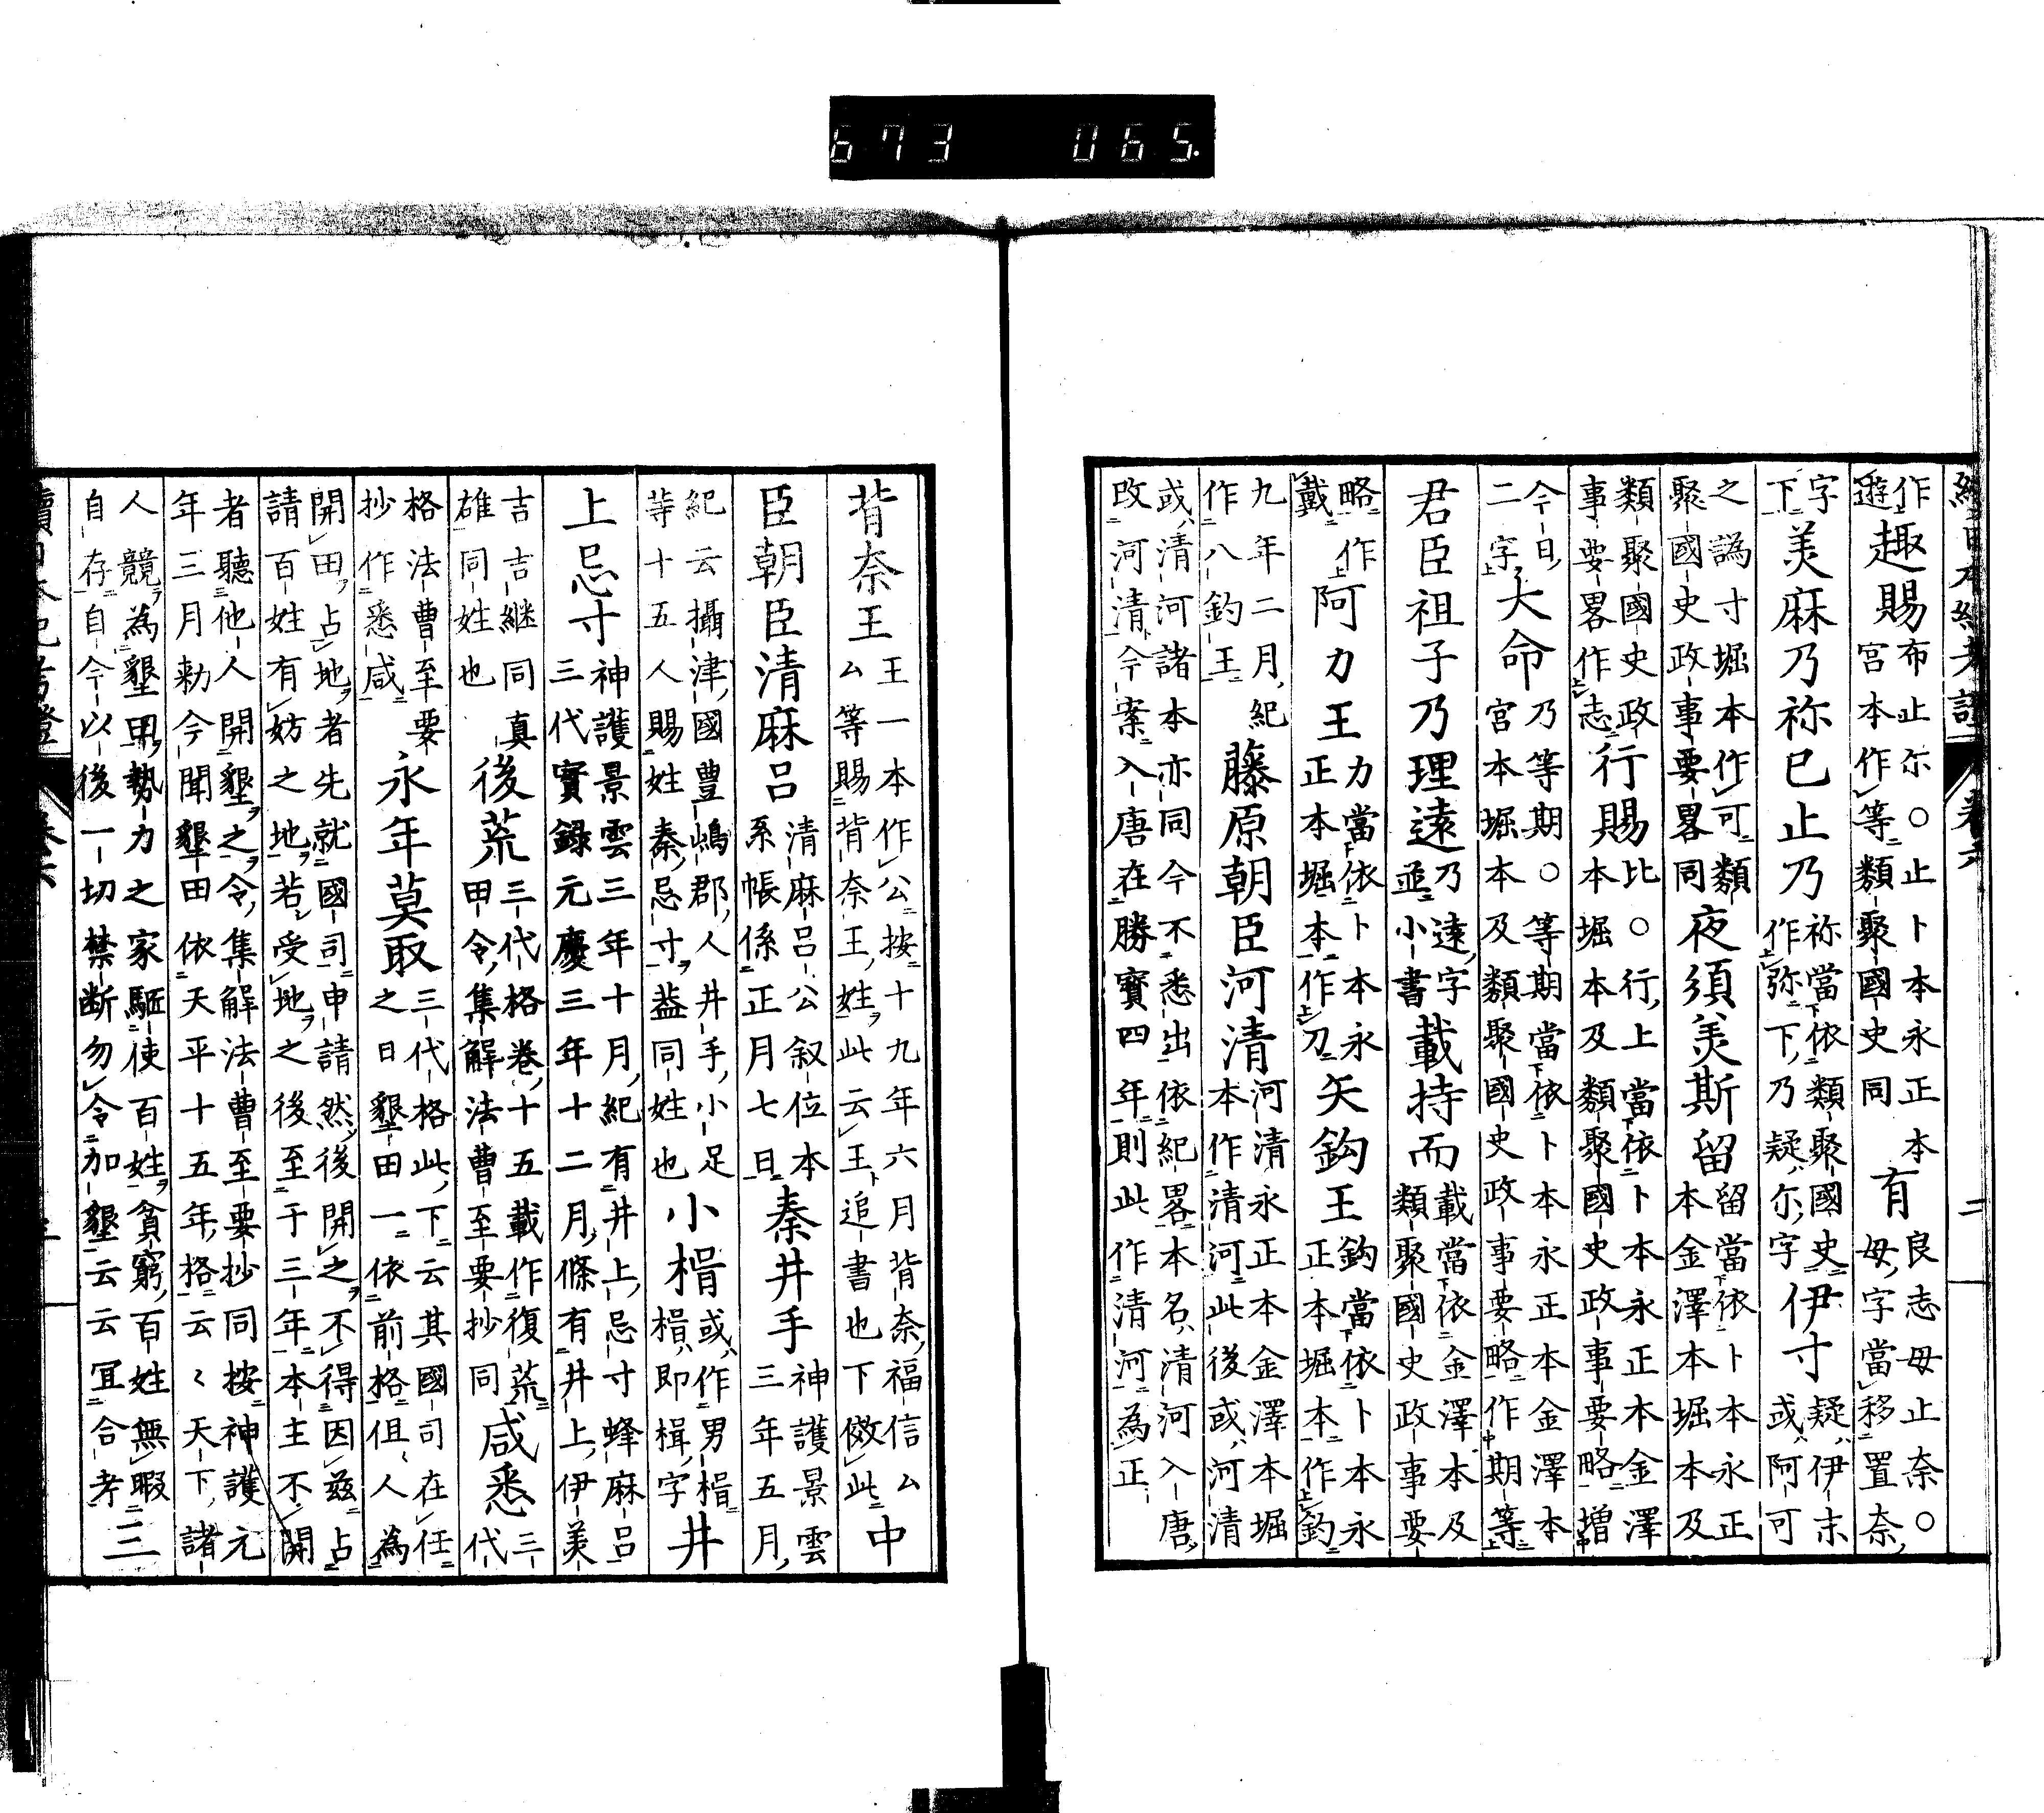 673 065.
作趣賜布止尓○止卜本永正本有良志毋止奈○
遊宮本作等類聚國史同毋字當移置奈
字美麻乃祢巳止乃祢當依類聚國史伊寸疑伊末
下作弥下乃疑尓字或阿可
之譌寸堀本作可類夜須美斯留留當依卜本永正
聚國史政事要畧同本金澤本堀本及
類聚國史政行賜比○行上當依卜本永正本金澤
事要畧作志本堀本及類聚國史政事要略増
今日大命乃等期○等期當依卜本永正本金澤本
二字宮本堀本及類聚國史政事要略作期等
君臣祖子乃理遠乃遠字載持而載當依金澤本及
並小書類聚國史政事要
略作阿力王力當依卜本永矢鈎王鈎當依卜本永
戴正本堀本作刀正本堀本作釣
九年二月紀藤原朝臣河清河清永正本金澤本堀
作八釣王本作清河此後或河清
或清河諸本亦同今不悉出依紀畧本名清河入唐
改河清今案入唐在勝寶四年則此作清河為正
背奈王王一本作公按十九年六月背奈福信公中
公等賜背奈王姓此云王追書也下倣此
臣朝臣清麻呂清麻呂公叙位本秦井手神護景雲
系帳係正月七日三年五月
紀云攝津國豊嶋郡人井手小足小楫或作男楫井
等十五人賜姓秦忌寸葢同姓也楫即楫字
上忌寸神護景雲三年十月紀有井上忌寸蜂麻呂
三代實録元慶三年十二月條有井上伊美
吉吉継同真後荒三代格卷十五載作復荒咸悉三
雄同姓也甲令集解法曹至要抄同代
格法曹至要永年莫取三代格此下云其國司在任
抄作悉咸之日墾田一依前格但人為
開田占地者先就國司申請然後開之不得因茲占
請百姓有妨之地若受地之後至于三年本主不開
者聽他人開墾之令集解法曹至要抄同按神護元
年三月勅今聞墾田依天平十五年格云〻天下諸
人競為墾田勢力之家駈使百姓貧窮百姓無暇三
自存自今以後一切禁断勿令加墾云云冝合考